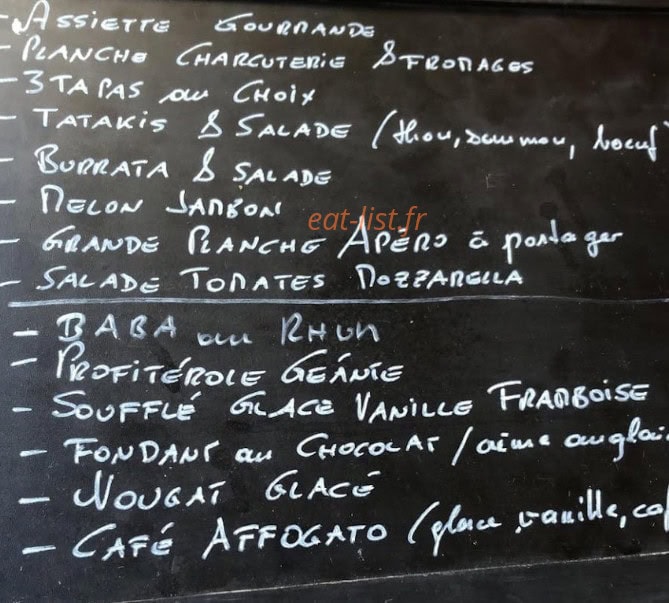 - ASSIETTE GOURMANDE
- PLANCHE CHARCUTERIE & FROMAGES
- 3 TAPAS au CHOIX
- TATAKIS & SALADE (thon, saumon, boeuf)
- BURRATA & SALADE
- MELON JAMBON
eat-list.fr
- GRANDE PLANCHE APÉRO à partager
- SALADE TOMATES MOZZARELLA
- BABA au RHUM
- PROFITÉROLE GÉANTE
- SOUFFLÉ GLACE VANILLE FRAMBOISE
- FONDANT au CHOCOLAT / crème anglai
- NOUGAT GLACÉ
- CAFÉ AFFOGATO (glace vanille, ca